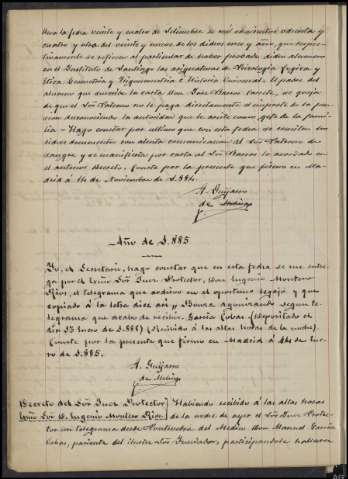 Una fecha veinte y cuatro de Setiembre de mil ochocientos ochenta y
cuatro y otra del veinte y nueve de los dichos mes y año, que respec-
tivamente se refieren al particular de haber probado dicho alumno
en el Instituto de Santiago las asignaturas de Psicología Lógica y
Ética, Geometría y Trigonometría é Historia Universal. El padre del
alumno que suscribe la carta Don José Barros se queja
de que el Sor Patrono no le paga directamente el importe de la pen-
sion desconociendo la autoridad que le asiste como gefe de la fami-
lia - Hago constar por ultimo que con esta fecha se remiten sin
dichos documentos con atenta comunicacion al Sor Patrono de
sangre, y se manifiesta por carta al Sor Barros lo acordado en
el anterior Decreto, Conste por la presente que firmo en Ma-
drid á 14 de Noviembre de 1.884.
A. Guijarro
de Medina
Año de 1.885
Yo, el Secretario, hago constar que en esta fecha se me entre-
ga por el Excmo Sor Juez Protector, Don Eugenio Montero
Rios, el telegrama que archivo en el oportuno legajo y que
copiado á la letra dice asi "Bouza agonizando segun te-
legrama que acabo de recibir. García Cobas. (Depositado el
dia 13 Enero de 1.885) (Recibido á las altas horas de la noche).
Conste por la presente que firmo en Madrid á 14 de Ene-
ro de 1.885.
A. Guijarro
de Medina
Decreto del Sor Juez Protector Habiendo recibido á las altas horas
Excmo Sor D. Eugenio Montero Rios de la noche de ayer el Sor Juez Protec-
tor un telegrama desde Pontevedra del Medico Don Manuel García
Cobas, pariente del ilustre Sor Fundador, participandole hallarse